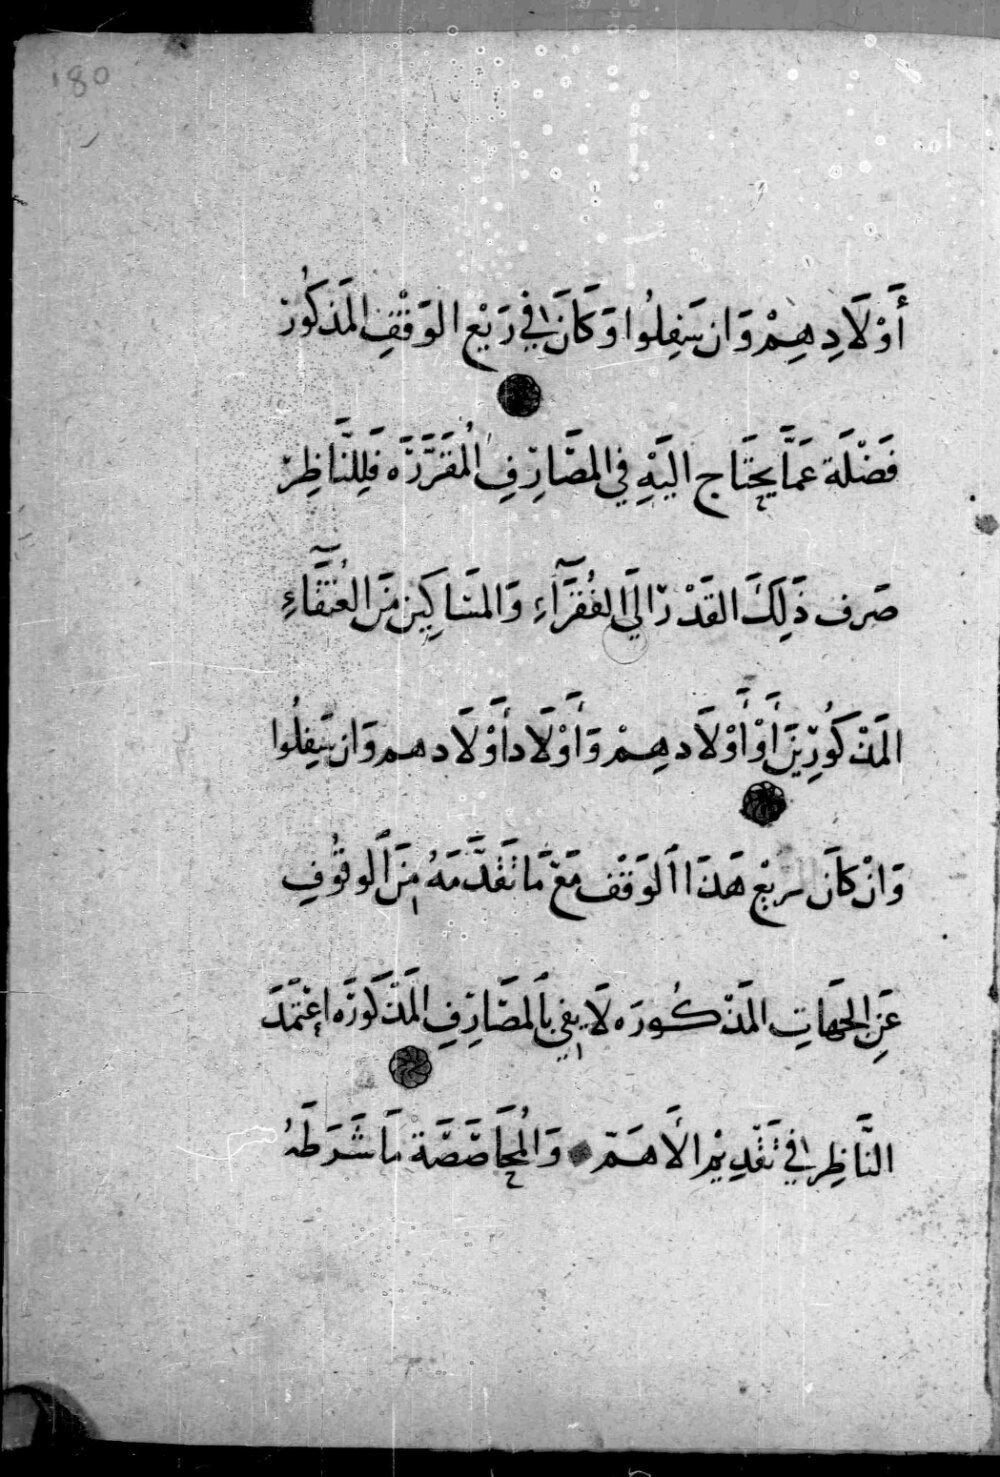 180
أَوْلَادِهِمْ وَان سَفِلُوا وَكَانَ فِي رَيْع الوَقْفِ المَذكُور
فَضْلَة عَمَّا يحتَاج اليَهِ فِي المصَّارِفِ المُقَرَّرَه فَلِلنَّاظِرِ
صَرف ذَلِكَ القَدْر الَي الفُقَرَآءِ وَالمسَاكِين مِنَ العُتَقَآءِ
المَذكُورِينَ أَوْ أَوْلَادهِمْ وَأَوْلَاد أَوْلَادهم وَان سَفِلُوا
وَانْ كَانَ ريع هَذَا الوَقْف مَعَ مَا تَقَدَّمَهُ مِنَ الوقُوفِ
عَنِ الجَهَاتِ المَذْكُورَه لَا يفي بالمصَارِفِ المَذكُورَه إعْتَمَدَ
النَّاظِر فِي تَقْدِيمْ الأَهَمّ وَالمُحَاصَصَة مَا شَرَطَهُ